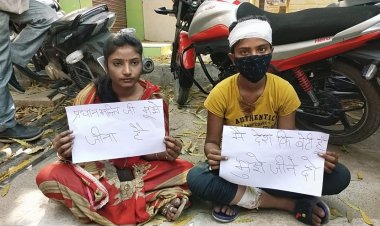 प्रधानमंत्री जी मुझे
जीना है
मैं देश कि बेटी हूँ
मुझे जीने दो
AUTHENTIC